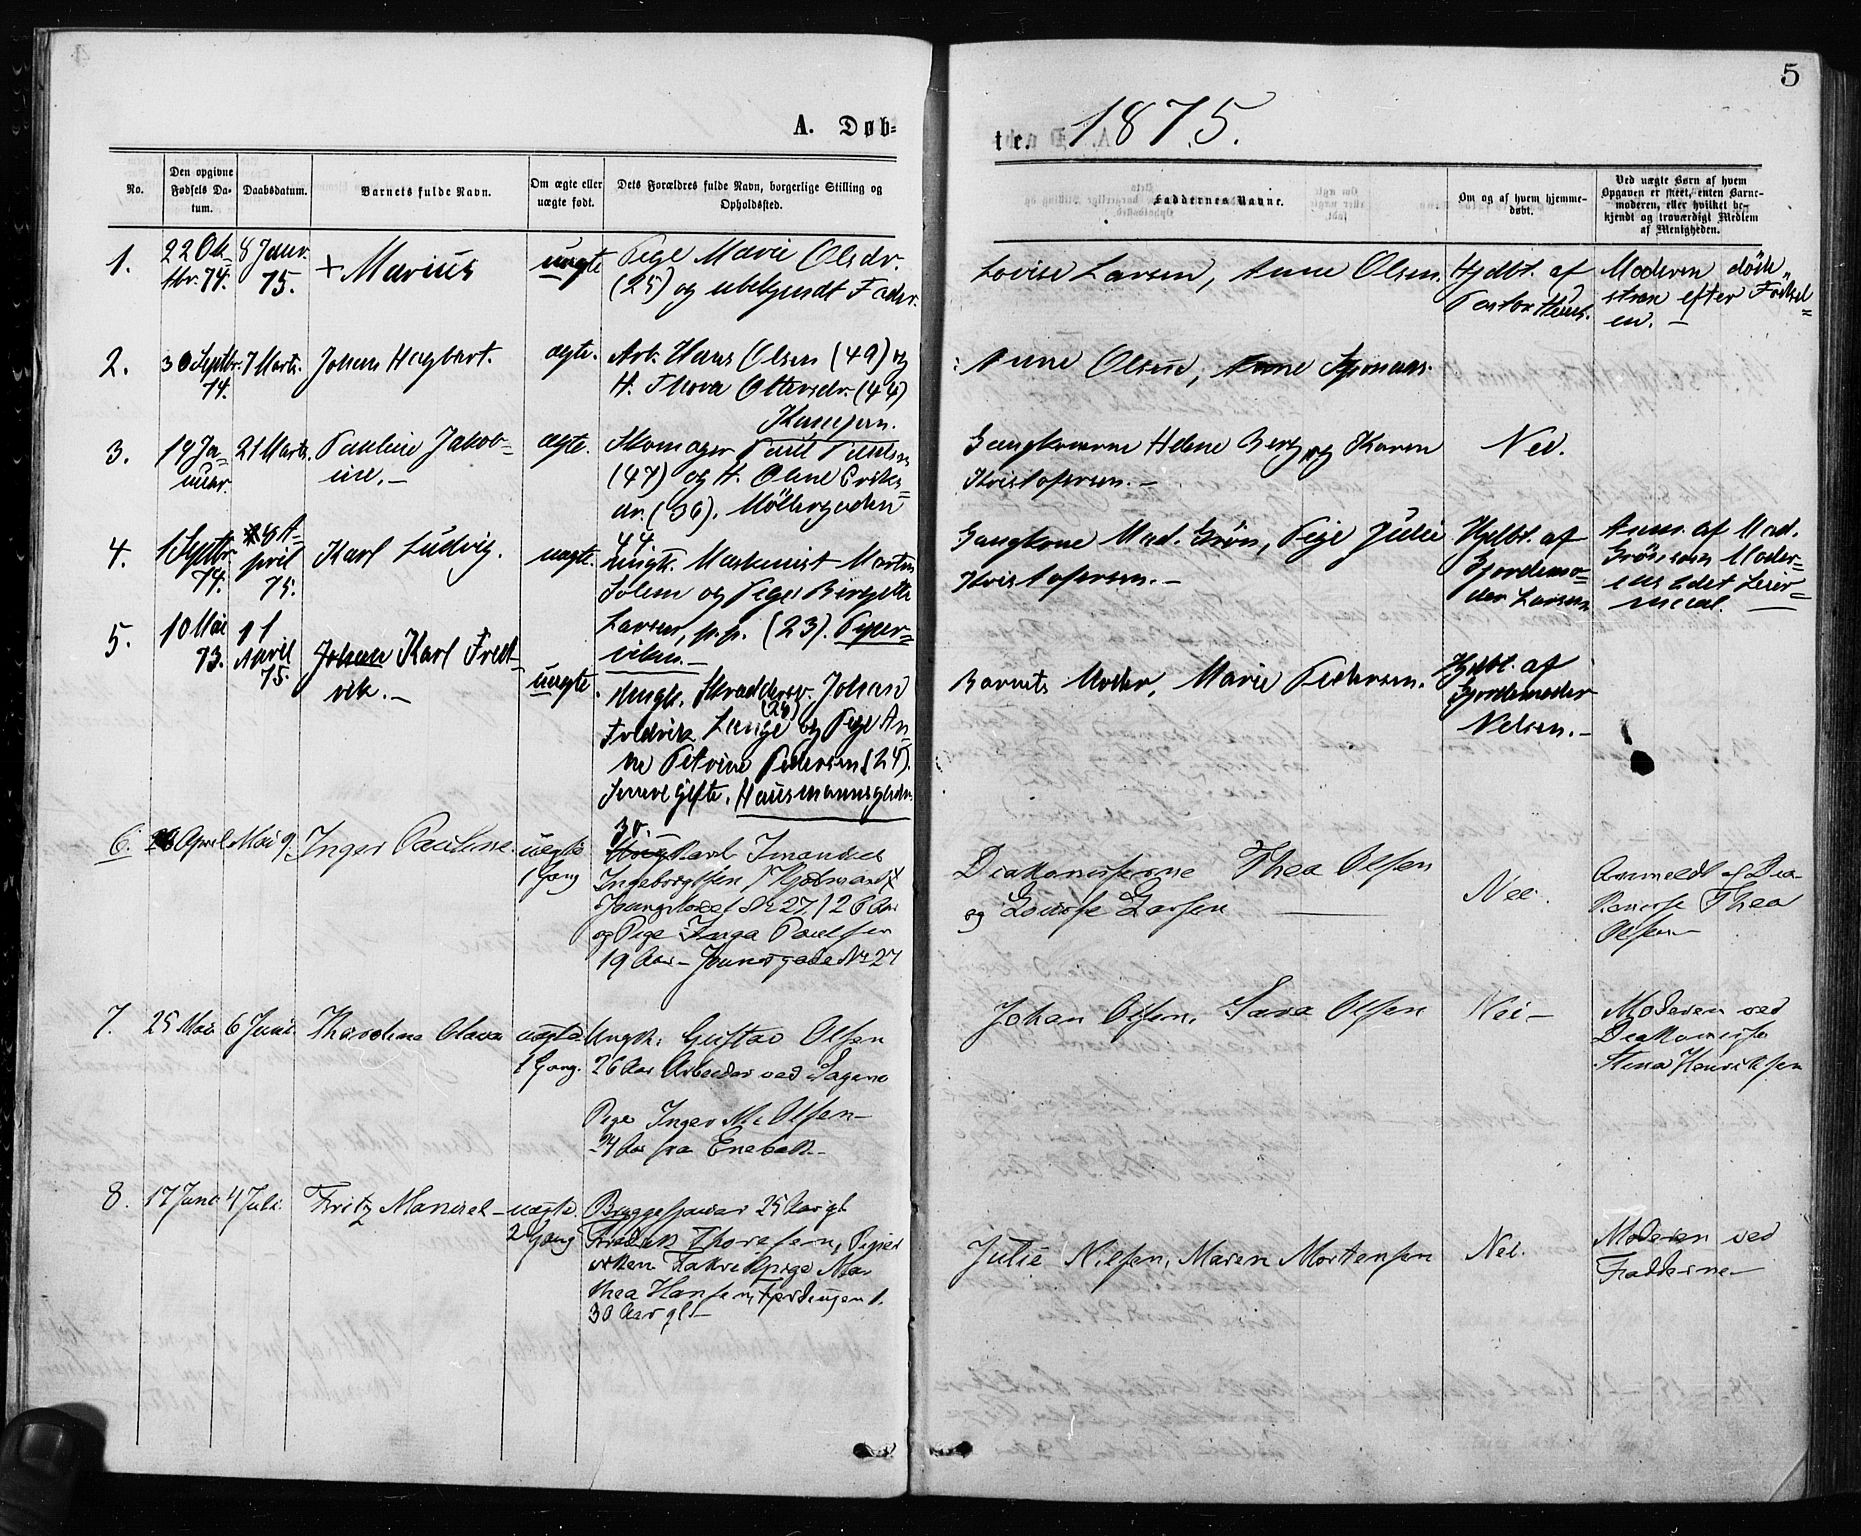 5
A. Døb-
ten 1875.
No.
Den opgivne Fødsels Da-
tum.
Daabsdatum.
Barnets fulde Navn.
Om ægte eller
uægte født.
Dets Forældres fulde Navn, borgerlige Stilling og
Opholdssted.
Faddernes Navne.
Om og af hvem hjemme-
døbt.
Ved uægte Børn af hvem
Opgaven er skeet, enten Barne-
moderen, eller hvilket be-
kjendt og troværdigt Medlem
af Menigheden.
1.
22 Ok-
tbr. 74.
8 Janr.
75.
+ Marius
uægte
Pige Marie Olsdr.
(25) og ubekjendt Fader.
Lovise Larsen, Anne Olsen.
Hjdbt. af
Pastor
Moderen døde
strax efter Fødsel=
en. –
2.
30 Septbr.
74.
7 Marts.
Johan Hagbart.
ægte.
Arb. Hans Olsen (49) og
H. Thora Olsdr. (44)
Anne Olsen, Anne
3.
19 Ja-
nuar.
21 Marts.
Pauline Jakob-
ine. –
ægte.
Skomager Paul
(47) og H. Oline Eriks=
dr. (36). Möllergaden
44
Gangkonerne Helene Berg og Karen
Kristofersen. –
Nei.
4.
1 Septbr.
74.
8 A-
pril
75.
Karl Ludvig.
uægte.
Ungk. Maskinist Martin
Solem og Pige Birgitte
Larsen, p.p. (23). Piper-
viken. –
Gangkone Mad. Grön, Pige Julie
Kristofersen. –
Hjdbt. af
Jordemo-
der Larsen
Anm. af Mad.
Grön som Moder-
ens
5.
10 Mai
73.
11
April
75.
Johan Karl Fred-
rik. –
uægte.
Ungk. Skrædersv. Johan
(26)
Fredrik Lange og Pige An-
ne Petrine Pedersen (24).
Senere gifte. Hausmannsgaden
30. –
Barnets Moder, Marie Pedersen.
Hjdbt. af
Jordemoder
Nelsen. –
6.
April
Mai 9.
Inger Pauline
uægte
1 Gang
Ungk Karl Imanuel
Ingebrigtsen
Youngstorvet No 27. 26 Aar
og Pige Inga Paulsen
19 Aar – Youngsgade No 27
Diakonisserne Thea Olsen
og Lovise Larsen
Nei.
Anmeldt af Dia
konisse Thea
Olsen –
7.
25 Mai
6 Juni.
Karoline Olava
uægte
1 Gang.
Ungk. Gustav Olsen
26 Aar Arbeider ved Sagene
Pige Inger M. Olsen –
24 Aar fra Enebak –
Johan Olsen, Sara Olsen
Nei –
Moderen ved
Diakonisse
Stina Henriksen
8.
17 Juni
4 Juli.
Fritz Manuel –
uægte.
2 Gang
Bryggesjouer 25 Aar gl
Fredrik Thoresen, Piper
viken Fabrikpige Ma
thea Hansen, 
30 Aar gl –
Julie Nilsen, Maren Mortensen
Nei.
Moderen ved
Fadderne –